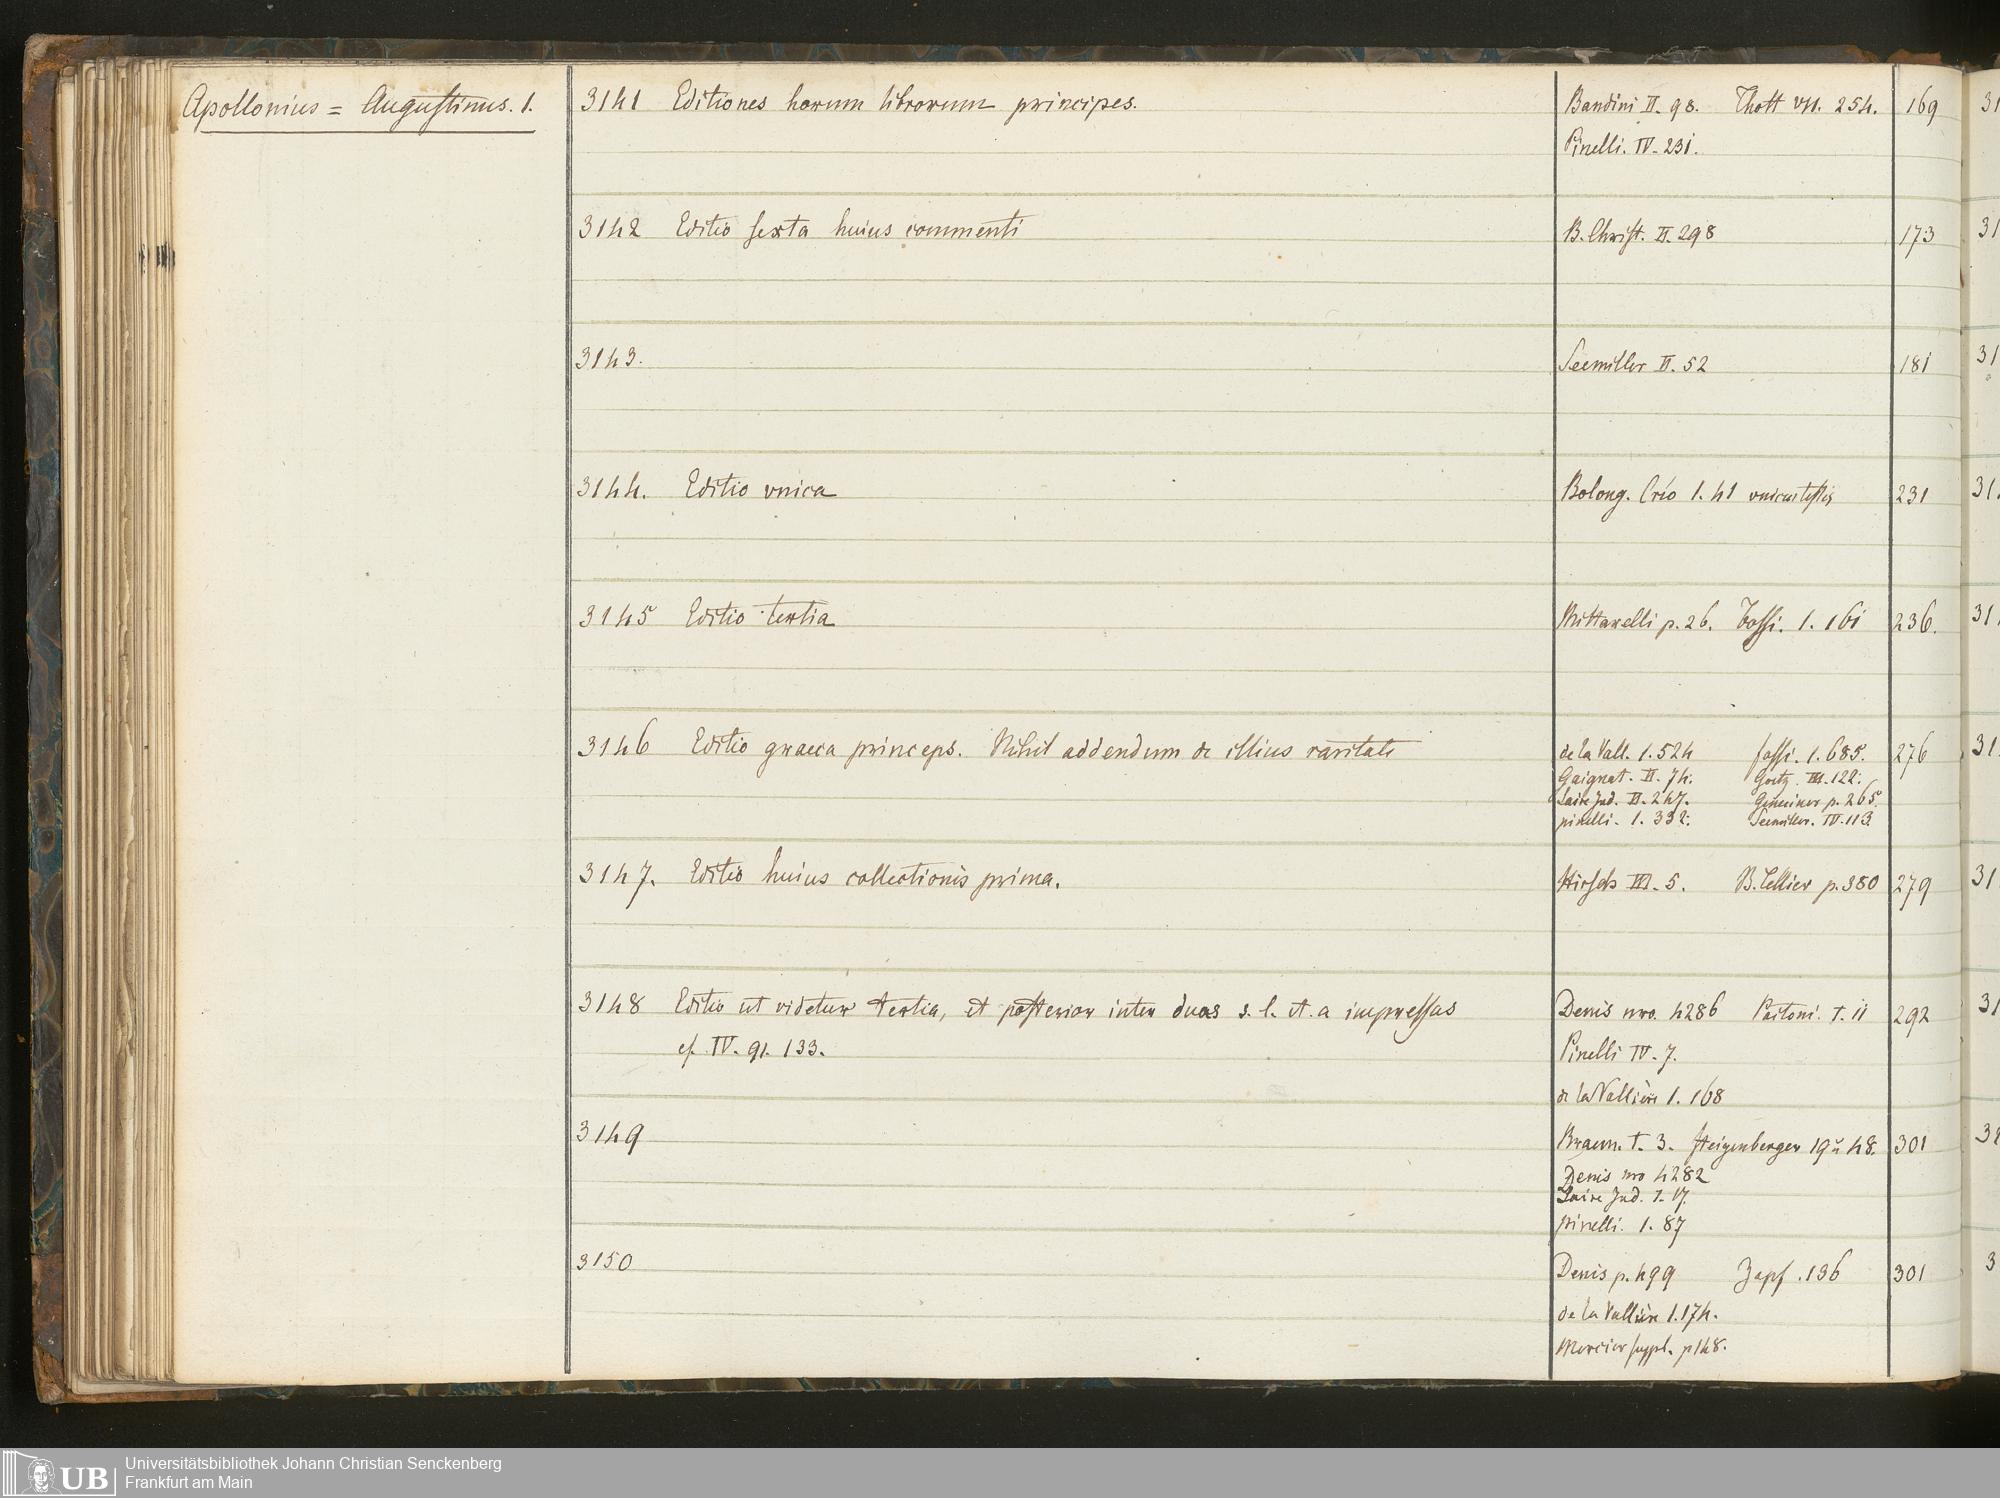 Apollonius = Augustinus. 1.
3141 Editiones horum librorum principes. Bandini II. 98. Thott VII. 254. 169
Pinelli. IV. 231.
3142 Editio sexta huius commenti B. Christ. II. 298 173
3143. Seemiller II. 52 181
3144. Editio vnica Bolong. Crío 1. 41 vnicus testis 231
3145 Editio tertia Mittarelli p. 26. Fossi. 1. 161 236.
3146 Editio graeca princeps. Nihil addendum de illius raritate de la Vall. 1. 524 fossi. 1. 685. 276
Gaignat. II. 74. Goetz. III. 122.
Laire Ind. II. 247. Gemeiner p. 265.
pinelli. 1. 332. Seemiller. IV. 113.
3147. Editio huius collectionis prima. Hirsch III. 5. B. Tellier p. 380 279
3148 Editio ut videtur tertia, et posterior inter duas s. l. et. a impressas Denis nro. 4286 Paitoni. T. 11 292
cf. IV. 91. 133. Pinelli IV. 7.
de la Vallière 1. 168
3149 Braun. T. 3. Steigenberger 19 u 48. 301
Denis nro 4282
Laire Ind. 1. 17.
pinelli. 1. 87
3150 Denis p. 499 Zapf. 136 301
de la Vallière 1. 174.
Mercier suppl. p 148.
Universitätsbibliothek Johann Christian Senckenberg
Frankfurt am Main
UB